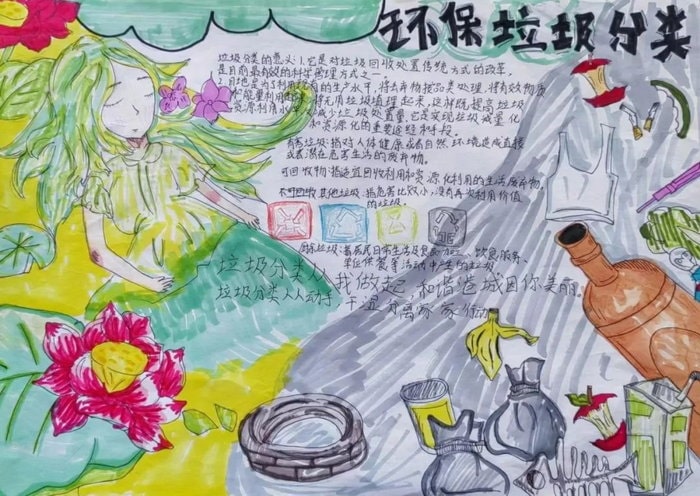 环保垃圾分类
垃圾分类的意义:1.它是对垃圾回收处置传统方式的改革,
是目前最有效的科学管理方式之一。
2.目地是为了利用现有的生产水平,将丢弃物按品类处理,将有效物质
和能量利用起来,将无用垃圾填埋起来,这样既提高垃圾
资源利用水平,又减少垃圾处置量,它是实现垃圾减量化
和资源化的重要途径和手段。
有害垃圾:指对人体健康或者自然环境造成直接
或者潜在危害生活的废弃物。
可回收物:指适宜回收利用和资源化利用的生活废弃物,
不可回收其他垃圾:指危害比较小,没有再次利用价值
的垃圾.
厨余垃圾:居民日常生活及食品加工、饮食服务、
单位供餐等活动中产生的垃圾
垃圾分类从我做起,和谐造城因你美丽.
垃圾分类人人动手,干湿分离家家行动